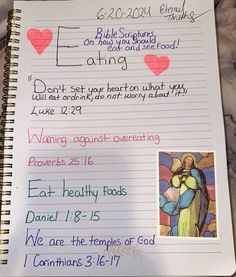 6-20-2024
Eternal
Thinking
Bible Scriptures
on how you should
eat and see food!
Eating
"Don't set your heart on what you
will eat or drink, do not worry about it"
Luke 12:29
Warning against overeating
Proverbs 25:16
Eat healthy foods
Daniel 1:8-15
We are the temples of God
1 Corinthians 3:16-17